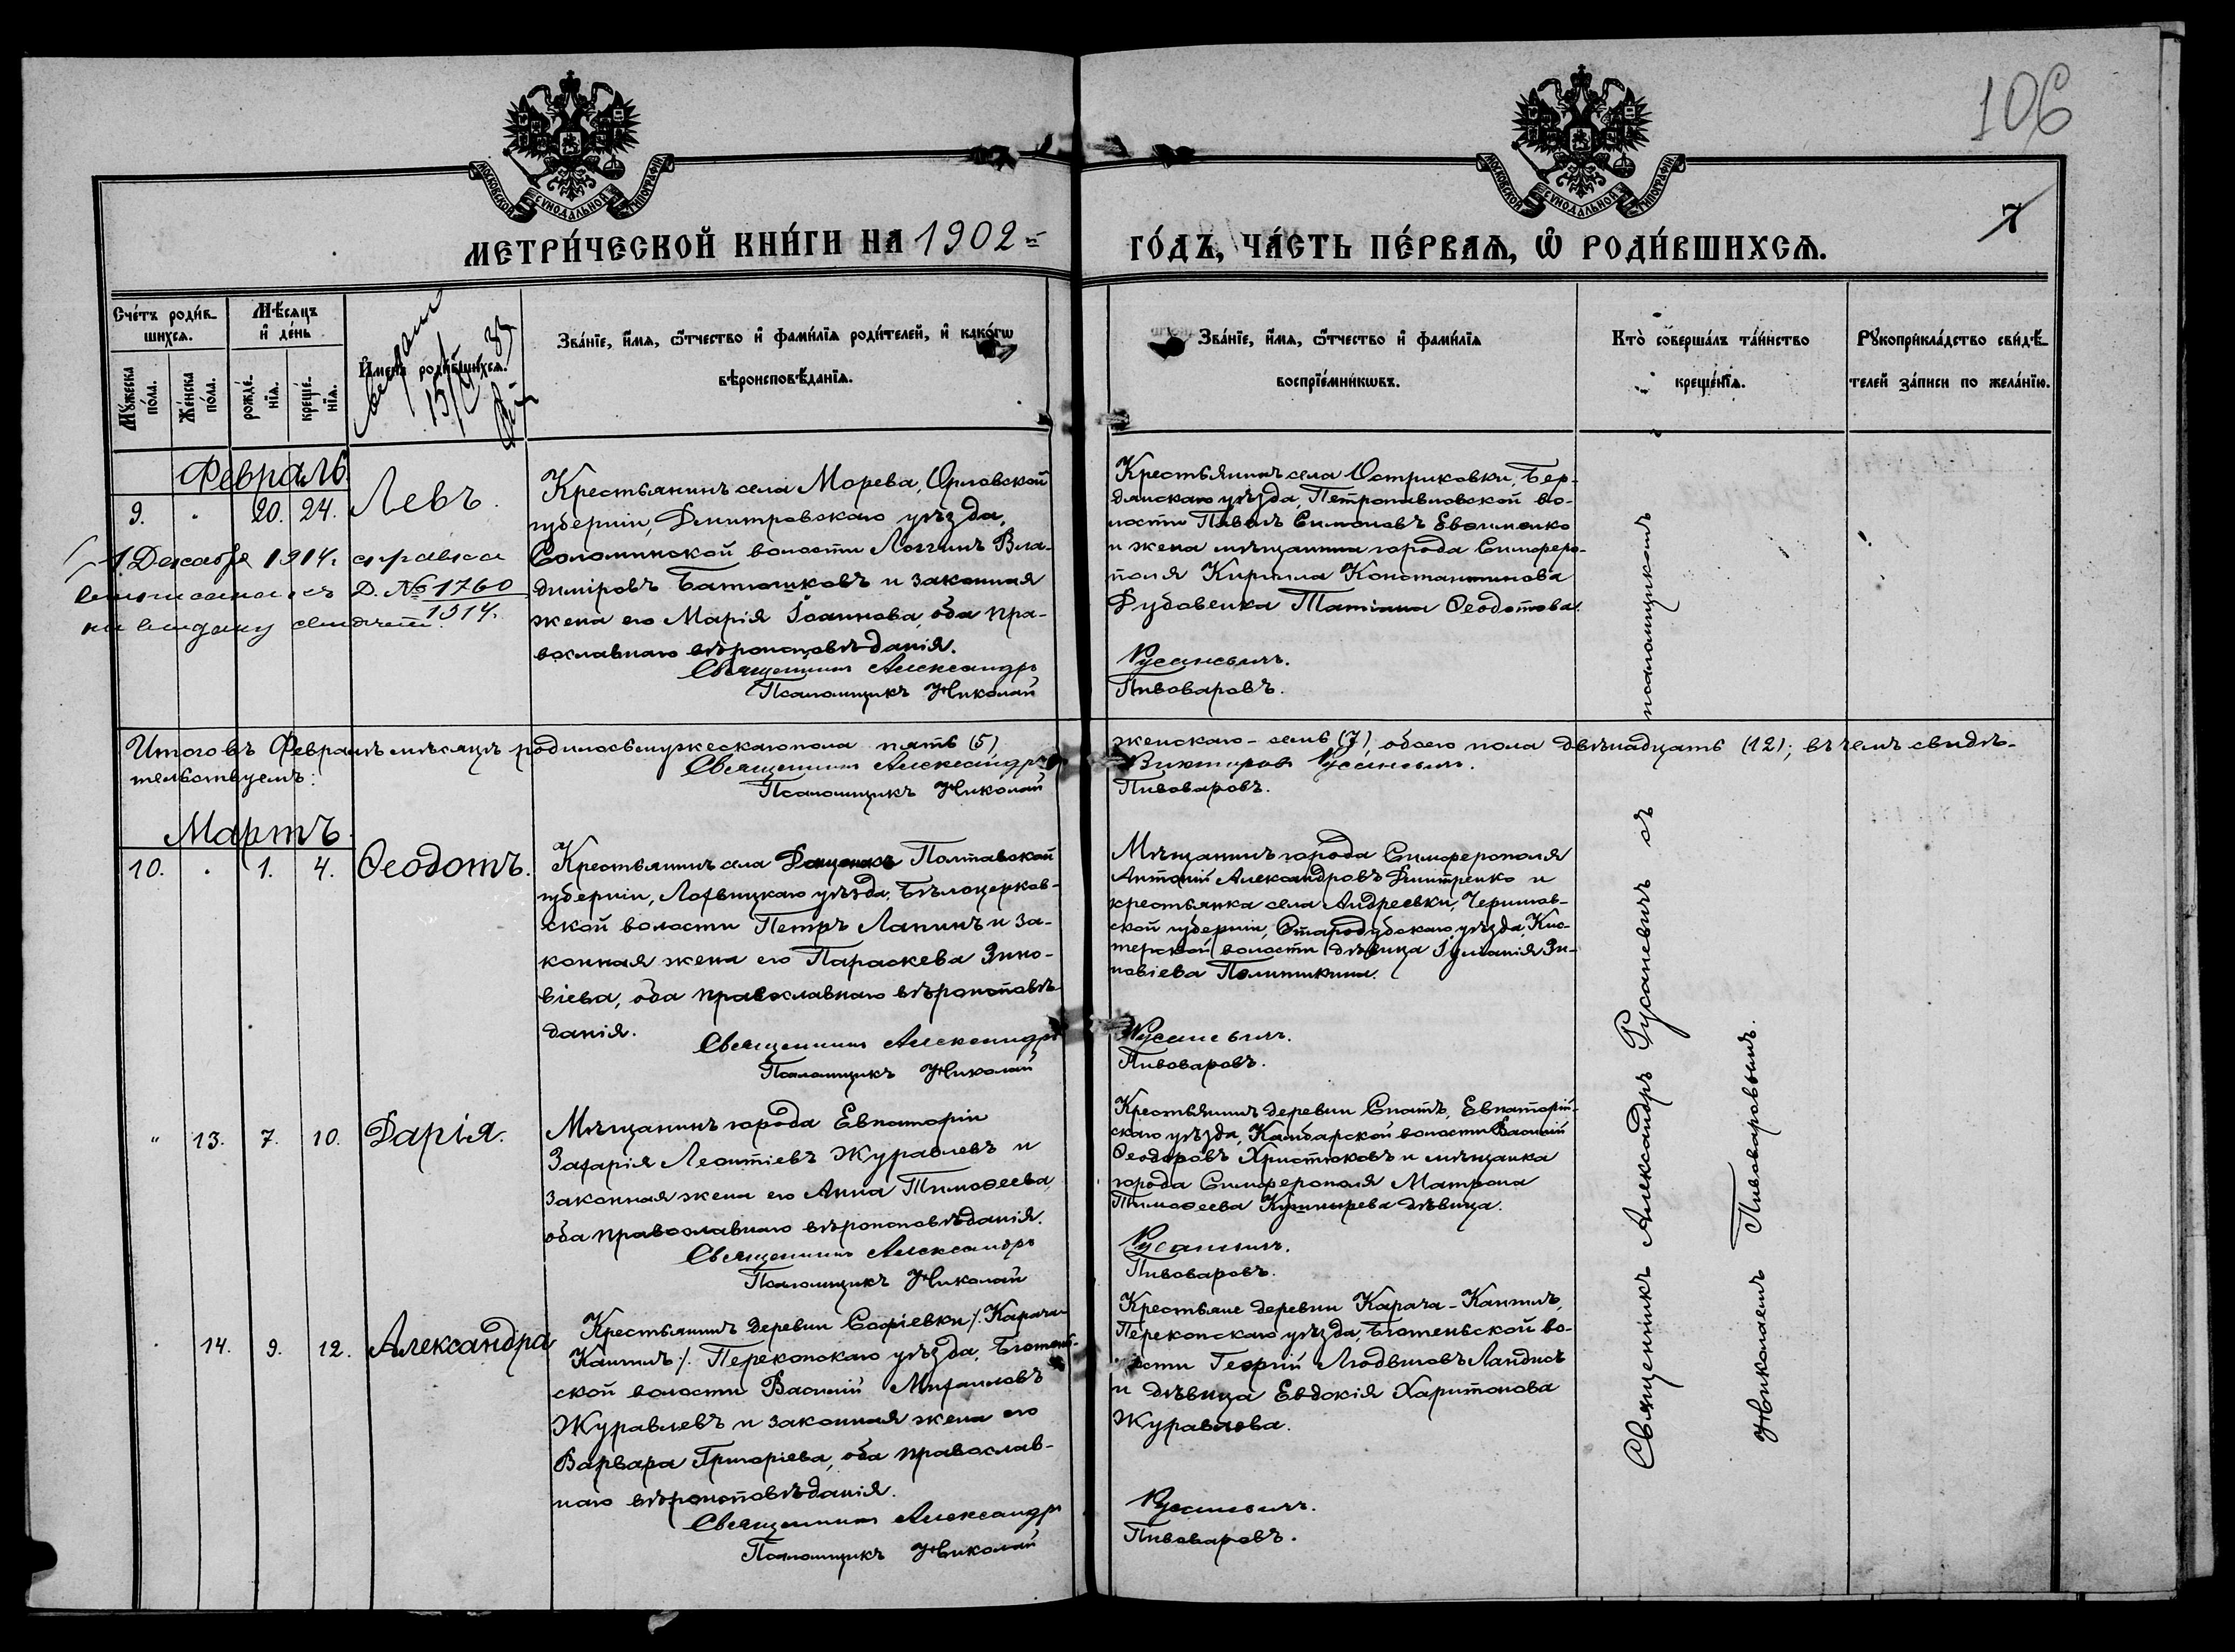 106
МОСКОВСКОЙ СУНОДАЛЬНОЙ ТИПОГРАФІИ
МОСКОВСКОЙ СУНОДАЛЬНОЙ ТИПОГРАФІИ
7
МЕТРИ́ЧЕСКОЙ КНИ́ГИ НА 1902-й
ГО́ДЪ, ЧА́СТЬ ПЕ́РВАѦ, Ѡ҆ РОДИ́ВШИХСѦ.
Сче́тъ роди́в-
шихсѧ.
Мꙋ́жеска по́ла.
Же́нска по́ла.
Мѣ́сѧцъ
и҆ де́нь
рожде́-
нїѧ.
креще́-
нїѧ.
И҆мена̀ роди́вшихсѧ.
Зва́нїе, и҆́мѧ, ѻ҆́тчество и҆ фами́лїѧ роди́телей, и҆ како́гѡ
вѣроисповѣ́данїѧ.
Зва́нїе, и҆́мѧ, ѻ҆́тчество и҆ фами́лїѧ
воспрїе́мникѡвъ.
Кто̀ соверша́лъ та́инство
креще́нїѧ.
Рꙋкоприкла́дство свидѣ́-
телей за́писи по жела́нїю.
Февраль.
9. . 20. 24. Левъ.
Крестьянинъ села Морева, Орловской
губерніи, Дмитровскаго уѣзда,
Соломинской волости Логгинъ Вла-
диміровъ Батюшковъ и законная
жена его Марія Іоаннова, оба пра-
вославнаго вѣроисповѣданія.
Священникъ Александръ
Псаломщикъ Николай
1 Декабря 1914 г. справка
Д. № 1760
1914.
на выдачу
Крестьянинъ села Остриковки, Бер-
дянскаго уѣзда, Петропавловской во-
лости Павелъ Симоновъ Евфименко
и жена мѣщанина города Симферо-
поля Кирилла Константинова
Дубовенка Татіана Ѳеодотова.
Русаневичъ.
Пивоваровъ.
Итого въ Февралѣ мѣсяцѣ родилось мужескаго пола пять (5)
женскаго - семь (7), обоего пола двѣнадцать (12); въ чемъ свидѣ-
тельствуемъ:
Священникъ Александръ
Викторовъ Русаневичъ.
Псаломщикъ Николай
Пивоваровъ.
Мартъ.
10. . 1. 4. Ѳеодотъ.
Крестьянинъ села Полтавской
губерніи, Лохвицкаго уѣзда, Бѣлоцерков-
ской волости Петръ Лапинъ и за-
конная жена его Параскева Зино-
віева, оба православнаго вѣроисповѣ-
данія.
Священникъ Александръ
Псаломщикъ Николай
Мѣщанинъ города Симферополя
Антоній Александровъ Дмитренко и
крестьянка села Андреевки, Чернигов-
ской губерніи, Стародубскаго уѣзда, Кис-
терской волости дѣвица Іуліанія Зи-
новіева
Русаневичъ.
Пивоваровъ.
" 13. 7. 10. Дарія.
Мѣщанинъ города Евпаторіи
Захарія Леонтіевъ Журавлевъ и
законная жена его Анна Тимоѳеева,
оба православнаго вѣроисповѣданія.
Священникъ Александръ
Псаломщикъ Николай
Крестьянинъ деревни Спатъ, Евпаторій-
скаго уѣзда, Камбарской волости Василій
Ѳеодоровъ Христюковъ и мѣщанка
города Симферополя Матрона
Тимоѳеева дѣвица.
Русаневичъ.
Пивоваровъ.
. 14. 9. 12. Александра
Крестьянинъ деревни Софіевки /. Карача-
Кангилъ /. Перекопскаго уѣзда, Бютень-
ской волости Василій Михаиловъ
Журавлевъ и законная жена его
Варвара Григоріева, оба православ-
наго вѣроисповѣданія.
Священникъ Александръ
Псаломщикъ Николай
Крестьяне деревни Карача-Кангилъ,
Перекопскаго уѣзда, Бютеньской во-
лости Георгій Людвиговъ Ландисъ
и дѣвица Евдокія Харитонова
Журавлева.
Русаневичъ.
Пивоваровъ.
Священникъ Александръ Русаневичъ съ псаломщикомъ
Николаемъ Пивоваровымъ.